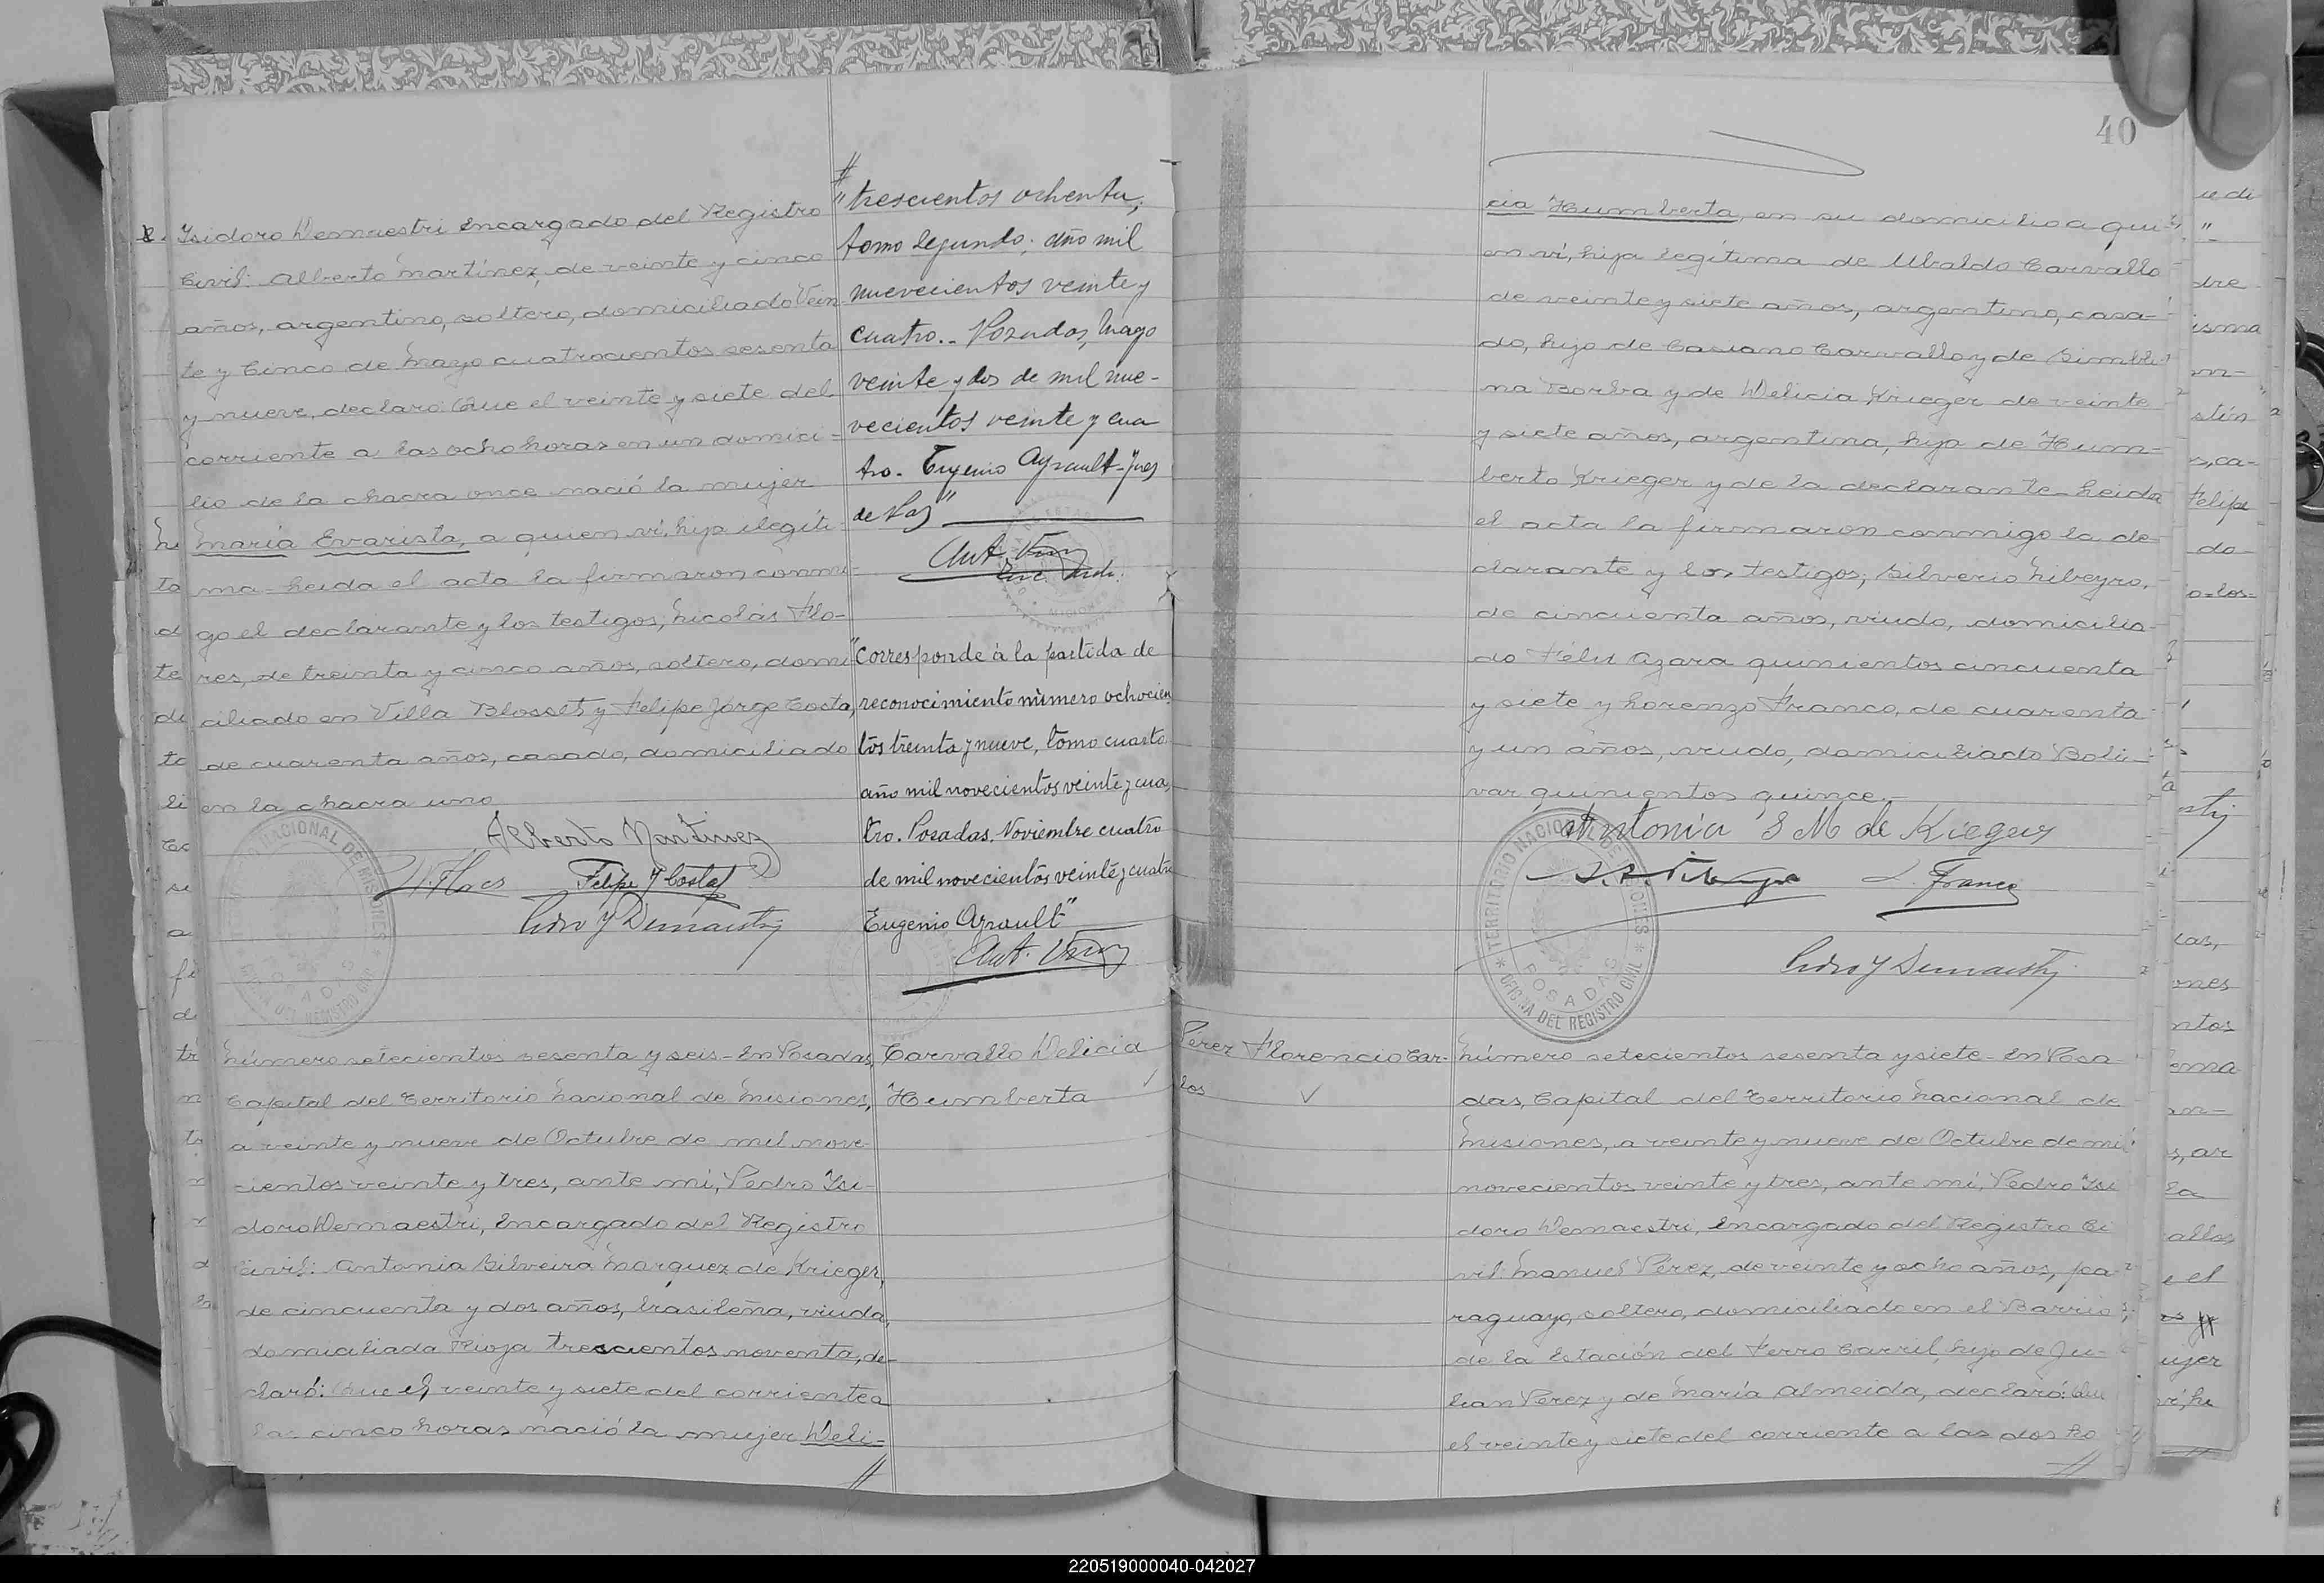 Isidoro Demaestri Encargado del Registro
Civil: Alberto Martínez, de veinte y cinco
años, argentino, soltero, domiciliado Vein-
te y Cinco de Mayo cuatrocientos sesenta
y nueve, declaró: Que el veinte y siete del
corriente a las ocho horas en un domici-
lio de la chacra once nació la mujer
María Evarista, a quien ví, hija ilegíti-
ma - Leida el acta la firmaron conmi-
go el declarante y los testigos; Nicolás Flo-
res, de treinta y cinco años, soltero, domi-
ciliado en Villa Blosset y Felipe Jorge Costa,
de cuarenta años, casado, domiciliado
en la chacra uno
Alberto Martinez
N. Flores Felipe J Costa
Pedro Y Demaestri
TERRITORIO NACIONAL DE MISIONES
OFICINA DEL REGISTRO CIVIL
POSADAS
//
"trescientos ochenta,
tomo segundo, año mil
nuevecientos veinte y
cuatro.- Posadas, Mayo
veinte y dos de mil nue-
vecientos veinte y cua
tro. Eugenio Ayrault - Juez
de Paz"
"Corresponde à la partida de
reconocimiento número ochocien
tos treinta y nueve, tomo cuarto
año mil novecientos veinte y cua,
tro. Posadas, Noviembre cuatro
de mil novecientos veinte y cuatro
Eugenio Ayrault"
Número setecientos sesenta y seis - En Posadas,
Capital del Territorio Nacional de Misiones,
a veinte y nueve de Octubre de mil nove-
cientos veinte y tres, ante mí, Pedro Isi-
doro Demaestri, Encargado del Registro
Civil: Antonia Silveira Marquez de Krieger,
de cincuenta y dos años, brasileña, viuda,
domiciliada Rioja trescientos noventa, de-
claró: Que el veinte y siete del corriente a
las cinco horas nació la mujer Deli-
//
Carvallo Delicia
Humberta
40
cia Humberta, en su domicilio a qui-
en ví, hija legítima de Ubaldo Carvallo
de veinte y siete años, argentino, casa-
do, hijo de Casiano Carvallo y de
na Borba y de Delicia Krieger de veinte
y siete años, argentina, hija de Hum-
berto Krieger y de la declarante - Leida
el acta la firmaron conmigo la de-
clarante y los testigos; Silverio Nibeyro,
de cincuenta años, viudo, domicilia-
do Félix Azara quinientos cincuenta
y siete y Lorenzo Franco, de cuarenta
y un años, viudo, domiciliado Boli-
var quinientos quince.-
Antonia S M de Kieger
L. Franco
Pedro Y Demaestri
TERRITORIO NACIONAL DE MISIONES
OFICINA DEL REGISTRO CIVIL
POSADAS
Pérez Florencio Car-
los
Número setecientos sesenta y siete - En Posa
das, Capital del Territorio Nacional de
Misiones, a veinte y nueve de Octubre de mil
novecientos veinte y tres, ante mí, Pedro Isi
doro Demaestri, Encargado del Registro Ci
vil: Manuel Pérez, de veinte y ocho años, pa-
raguayo, soltero, domiciliado en el Barrio
de la Estación del Ferro Carril, hijo de Ju-
lian Perez y de María Almeida, declaró: Que
el veinte y siete del corriente a las dos ho
//
220519000040-042027